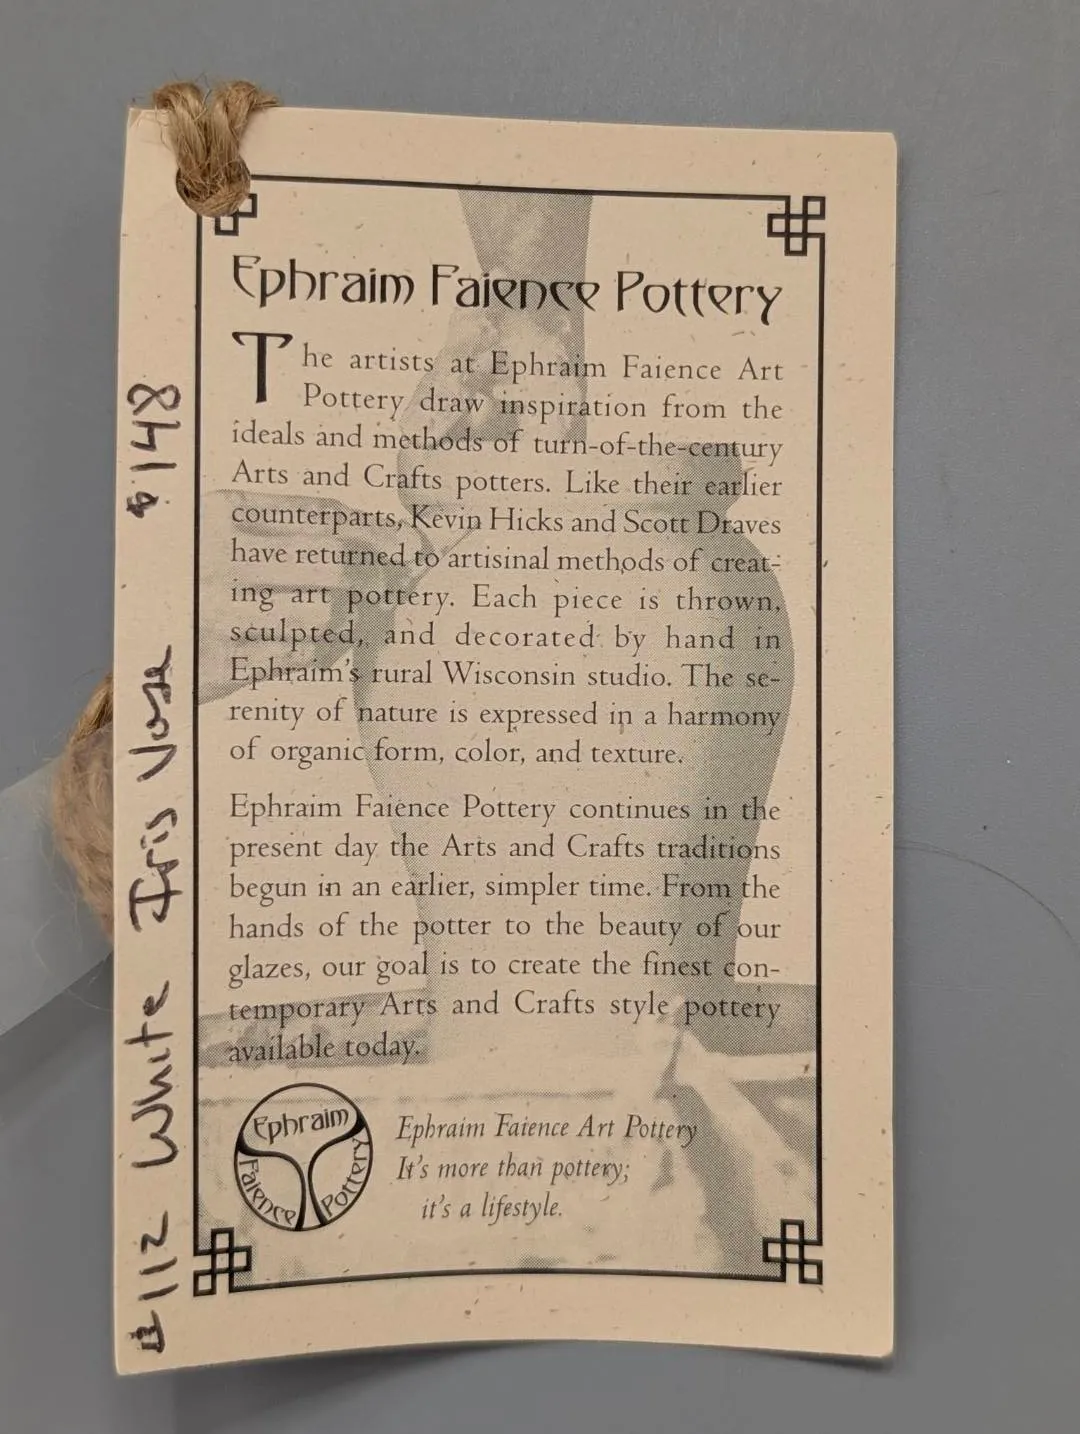 Ephraim Faience Pottery
The artists at Ephraim Faience Art
Pottery draw inspiration from the
ideals and methods of turn-of-the-century
Arts and Crafts potters. Like their earlier
counterparts, Kevin Hicks and Scott Draves
have returned to artisinal methods of creat-
ing art pottery. Each piece is thrown,
sculpted, and decorated by hand in
Ephraim's rural Wisconsin studio. The se-
renity of nature is expressed in a harmony
of organic form, color, and texture.
Ephraim Faience Pottery continues in the
present day the Arts and Crafts traditions
begun in an earlier, simpler time. From the
hands of the potter to the beauty of our
glazes, our goal is to create the finest con-
temporary Arts and Crafts style pottery
available today.
Ephraim
Faience
Pottery
Ephraim Faience Art Pottery
It's more than pottery;
it's a lifestyle.
#112 White Iris Vase $148